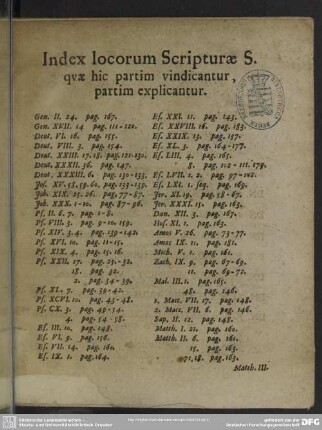 Index locorum Scripturæ S.
qvæ hic partim vindicantur,
partim explicantur.
Gen. II, 24. pag. 167.
Gen. XVII. 14 pag. 111-121.
Deut. VI. 16. pag. 155.
Deut. VIII. 3. pag. 154.
Deut. XXIII. 17. 18. pag. 121-130.
Deut. XXXII. 36. pag. 147.
Deut. XXXIII, 6. pag. 130-133.
Jos. XV. 58, 59. 60, pag. 133-139.
Job. XIX. 25. 26. pag. 77-87.
Job. XXX. 1-10. pag. 87-96.
Ps. II. 6. 7. pag. 1-8.
Ps. VIII. 3. pag. 9-10. 159.
Ps. XIV. 3. 4. pag. 139-142.
Ps. XVI. 10. pag. 11-15.
Ps. XIX. 4. pag. 15. 16.
Ps. XXII. 17. pag. 27.-32.
18. pag. 32.
2. pag. 34-39.
Ps. XL. 7. pag. 39-42.
Ps. XCVII. 10. pag. 43-48.
Ps. CX. 3. pag. 49-54.
4. pag. 54-58.
Es. III. 10. pag. 148.
Es. VI. 9. pag. 156.
Es. VII. 14. pag. 160.
Es. IX. 1. pag. 164.
Es. XXI. 11. pag. 143.
Es. XXVIII. 16. pag. 183.
Es. XXIX. 13. pag. 157.
Es. XL. 3. pag. 164-177.
Es. LIII, 4. pag. 165.
8. pag. 102-111. 179.
Es. LVII. 1. 2. pag. 97-102.
Es. LXI. 1. seq. pag. 169.
Jer. XI. 19. pag. 58-67.
Jer. XXXI. 15. pag. 163.
Dan. XII. 3. pag. 167.
Hos. XI, 1. pag. 163.
Amos V. 26. pag. 73-77.
Amos IX. 11. pag. 181.
Mich. V. 1. pag. 161.
Zach. IX. 9. pag. 67-69.
11. pag. 69-72.
Mal. III. 1. pag. 165.
48. pag. 146.
1. Macc. VII. 17. pag. 148.
2. Macc. VII. 6. pag. 146.
Sap. II. 12. pag. 148.
Matth. I. 21. pag. 160.
Matth. II. 6. pag. 161.
15. pag. 163.
18. pag. 163.
Matth. III.